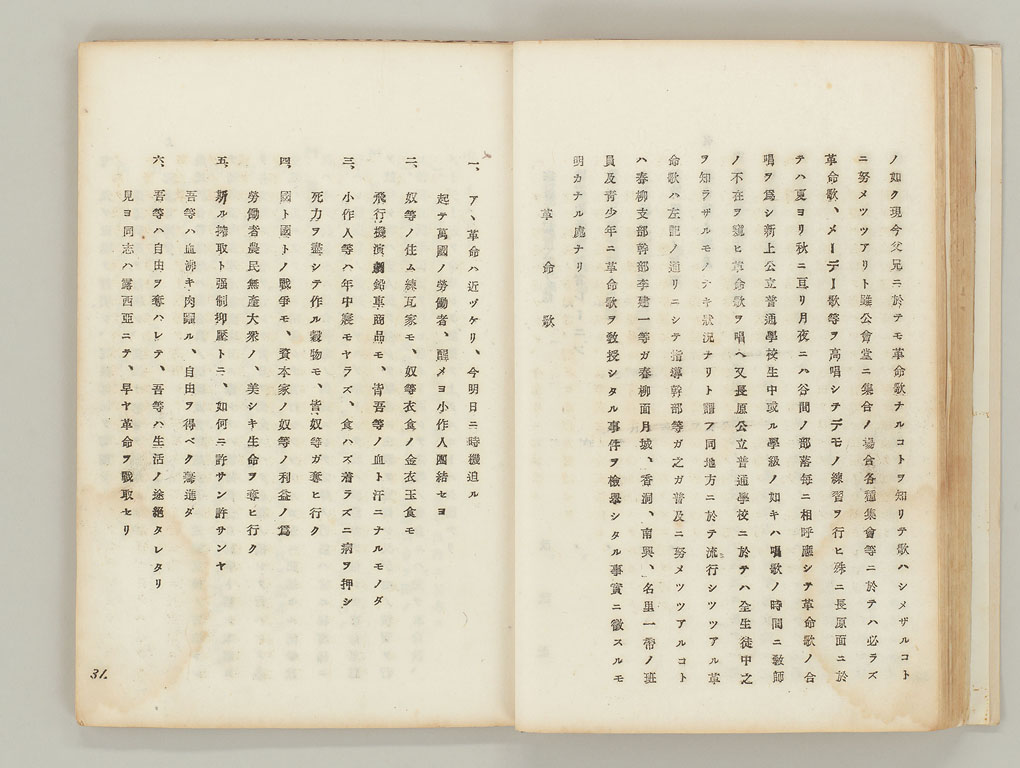 ノ如ク現今父兄ニ於テモ革命歌ナルコトヲ知リテ歌ハシメザルコト
ニ努メツツアリト雖公會堂ニ集合ノ場合各種集會等ニ於テハ必ラズ
革命歌、メーデー歌等ヲ高唱シテデモノ練習ヲ行ヒ殊ニ長原面ニ於
テハ夏ヨリ秋ニ亘リ月夜ニハ谷間ノ部落每ニ相呼應シテ革命歌ノ合
唱ヲ爲シ新上公立普通學校生中或ル學級ノ如キハ唱歌ノ時間ニ敎師
ノ不在ヲ窺ヒ革命歌ヲ唱ヘ又長原公立普通學校ニ於テハ全生徒中之
ヲ知ラザルモノナキ狀況ナリト謂フ同地方ニ於テ流行シツツアル革
命歌ハ左記ノ通リニシテ指導幹部等ガ之ガ普及ニ努メツツアルコト
ハ春柳支部幹部李建一等ガ春柳面月城、香洞、南興、名里一帶ノ班
員及靑少年ニ革命歌ヲ敎授シタル事件ヲ檢擧シタル事實ニ徵スルモ
明カナル處ナリ
革命歌
一、ア、革命ハ近ヅケリ、今明日ニ時機迫ル
起テ萬國ノ勞働者、醒メヨ小作人團結セヨ
二、奴等ノ住ム練瓦家モ、奴等衣食ノ金衣玉食モ
飛行機演劇鉛車商品モ、皆吾等ノ血ト汗ニナルモノダ
三、小作人等ハ年中寢モヤラズ、食ハズ着ラズニ病ヲ押シ
死力ヲ盡シテ作ル穀物モ、皆奴等ガ奪ヒ行ク
四、國ト國トノ戰爭モ、資本家ノ奴等ノ利益ノ爲
勞働者農民無產大衆ノ、美シキ生命ヲ奪ヒ行ク
五、斯ル搾取ト强制抑壓トニ、如何ニ許サン許サンヤ
吾等ハ血沸キ肉躍ル、自由ヲ得ベク奮進ダ
六、吾等ハ自由ヲ奪ハレテ、吾等ハ生活ノ途絕タレタリ
見ヨ同志ハ露西亞ニテ、早ヤ革命ヲ戰取セリ
31.